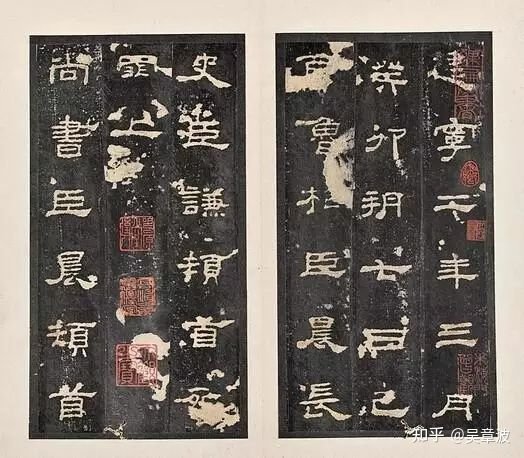 建寧二年三月
癸卯朔七日己
酉魯相臣晨長
史臣謙頓首死
罪上
尚書臣晨頓首
知乎 @吴章波